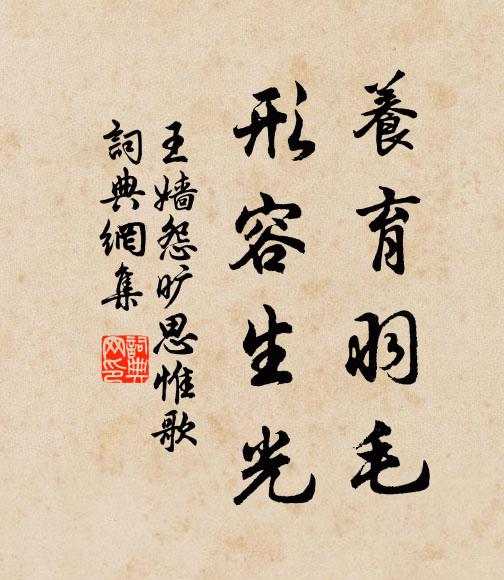 養育羽毛
形容生光
王嬙怨旷思惟歌
詞典網集
詞典
网印